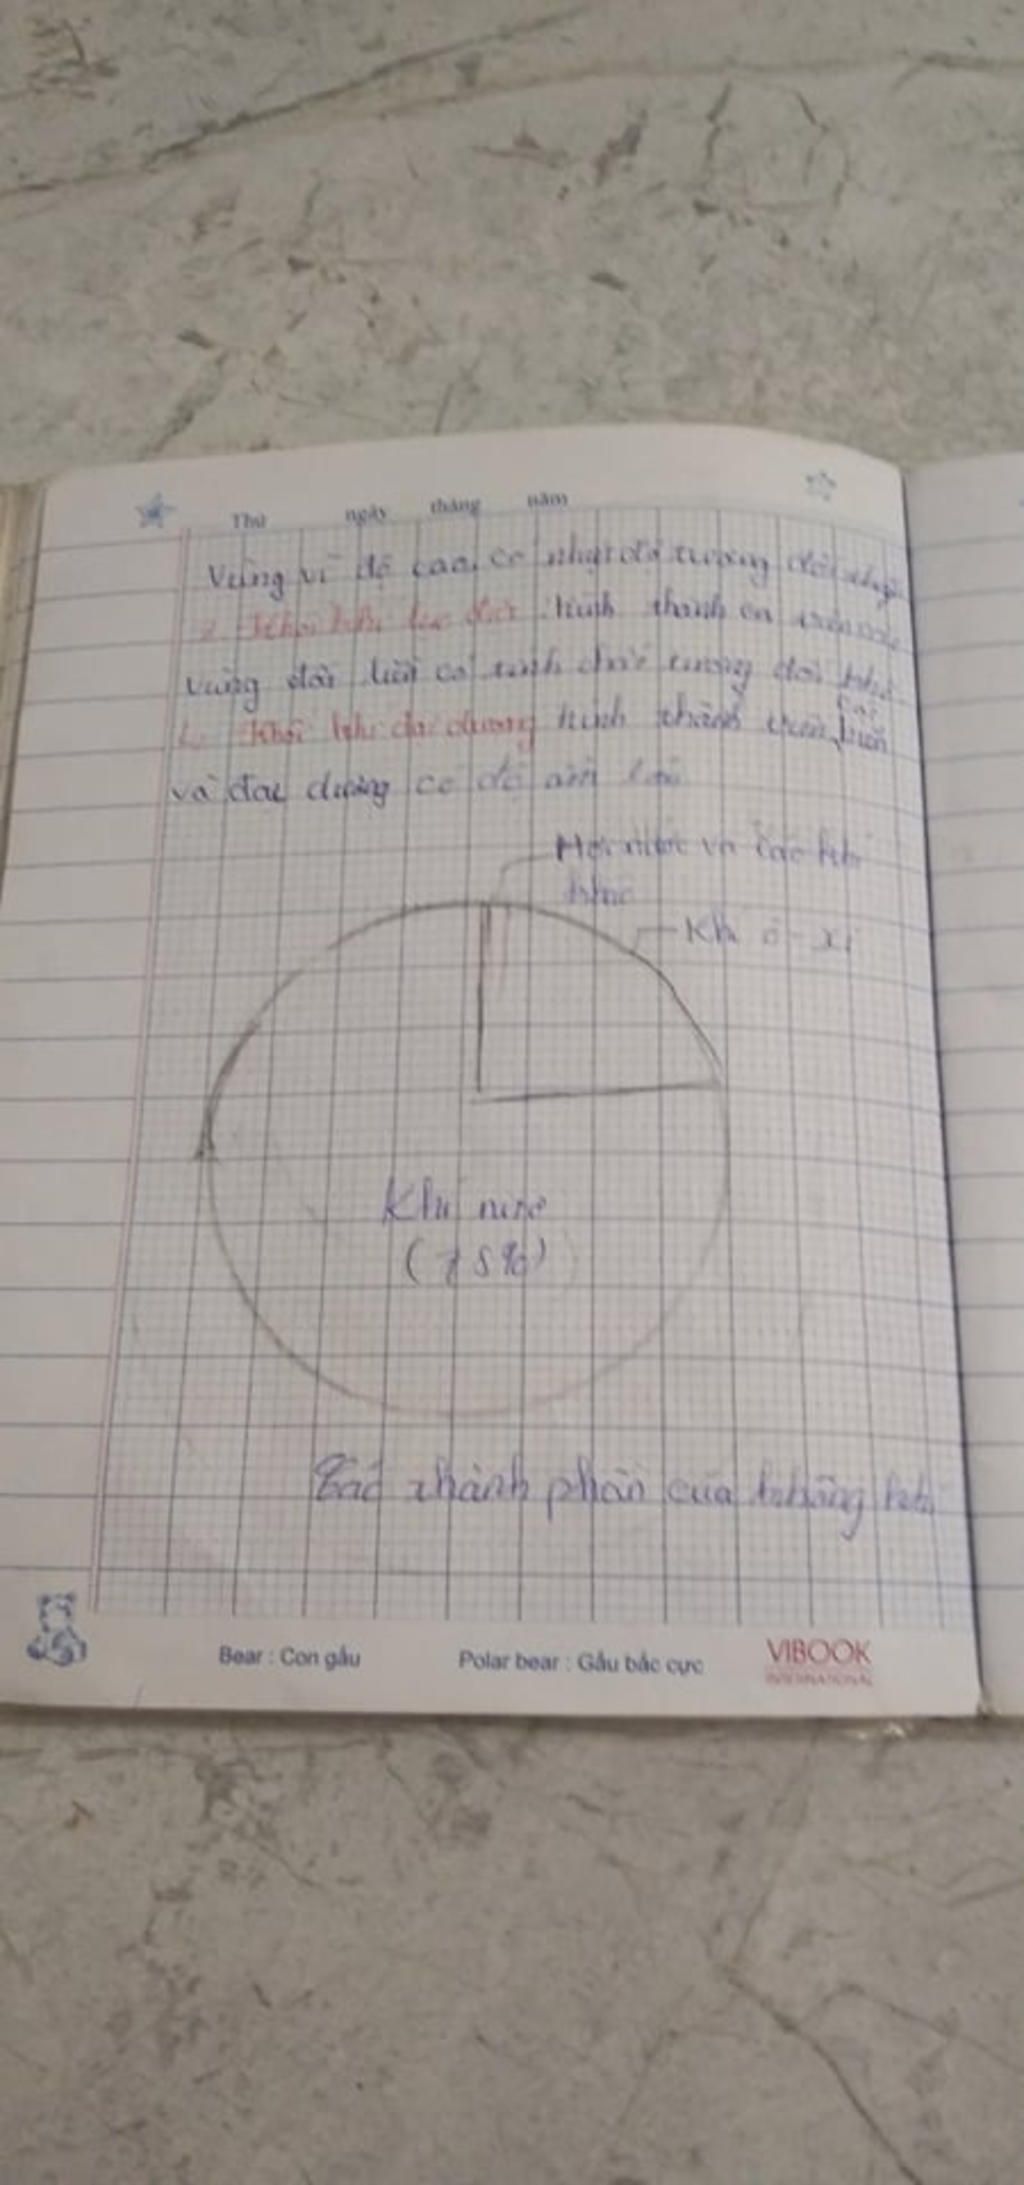 Thứ ngày tháng năm
Vùng vĩ độ cao, có nhiệt độ tương đối
Khối khí lục địa hình thành
vùng đất liền có tính chất tương đối khô
Khối khí đại dương hình thành trên biển
và đại dương có độ ẩm lớn
Hơi nước và các khí
khác
Khí ô-xi
Khí nitơ
(75%)
Các thành phần của không khí
Bear : Con gấu Polar bear : Gấu bắc cực VIBOOK
INTERNATIONAL